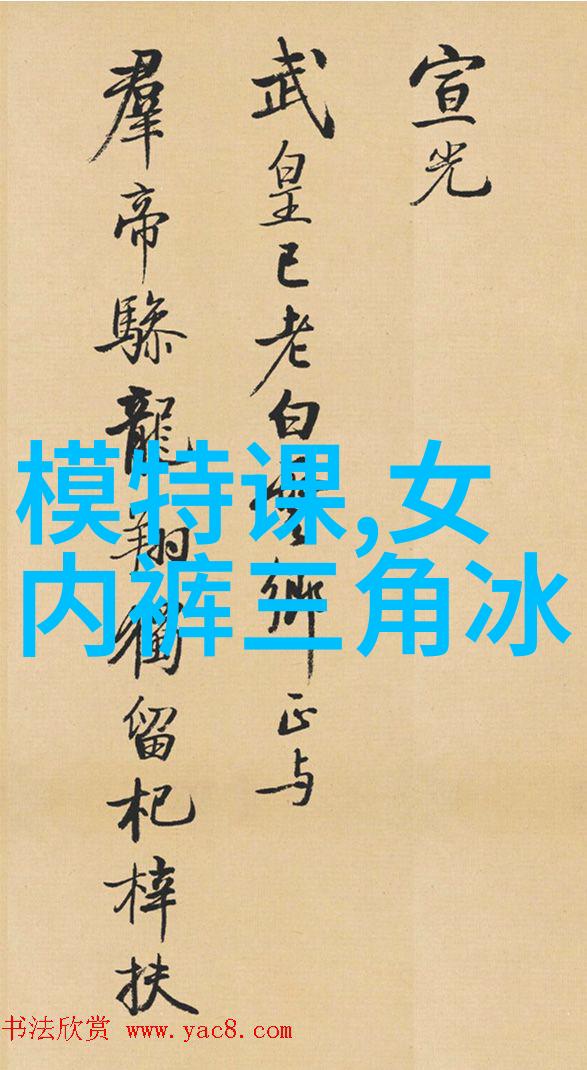 宣光
武皇已老白雲鄉正与
羣帝驂龍翔獨留杞梓扶
模特课,女
内裤三角冰
书法欣赏 www.yac8.com